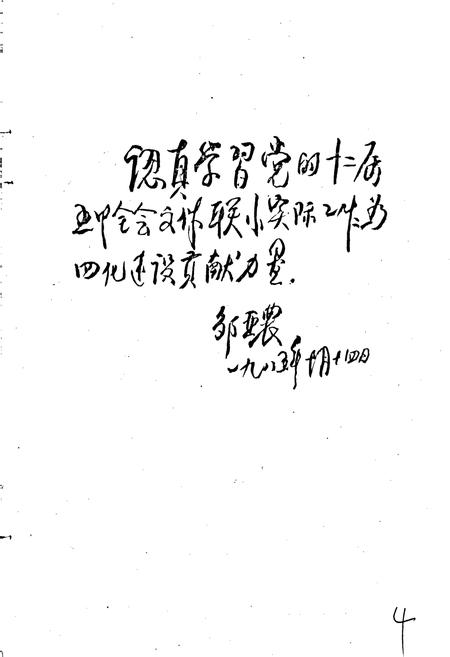 認真学習党的十二届
五中全会文件联系实际工作为
四化建设贡献力量.
邹
一九八五年十月十四日
4